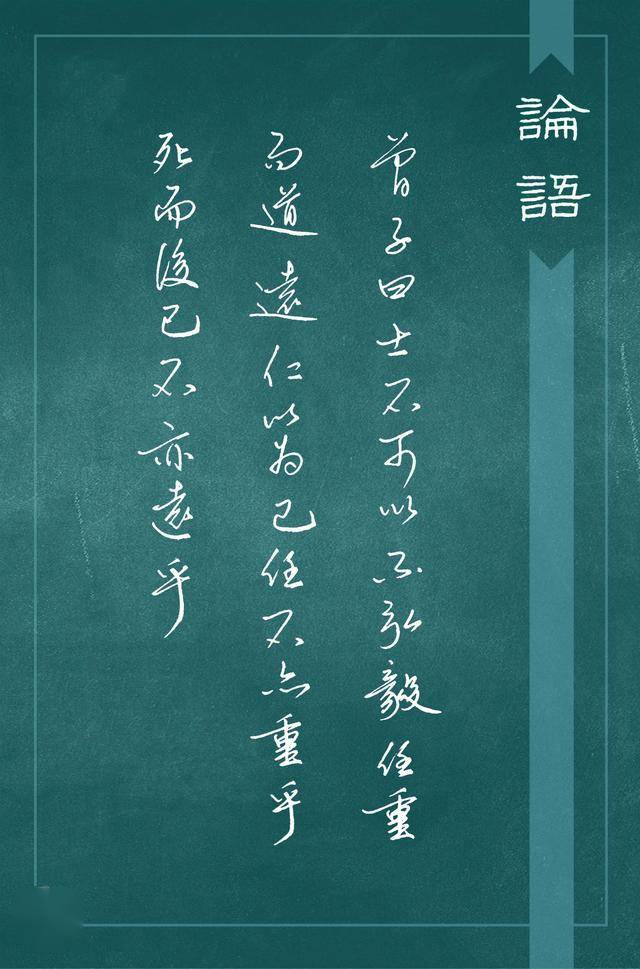 論語
曾子曰士不可以不弘毅任重
而道遠仁以為己任不亦重乎
死而後已不亦遠乎